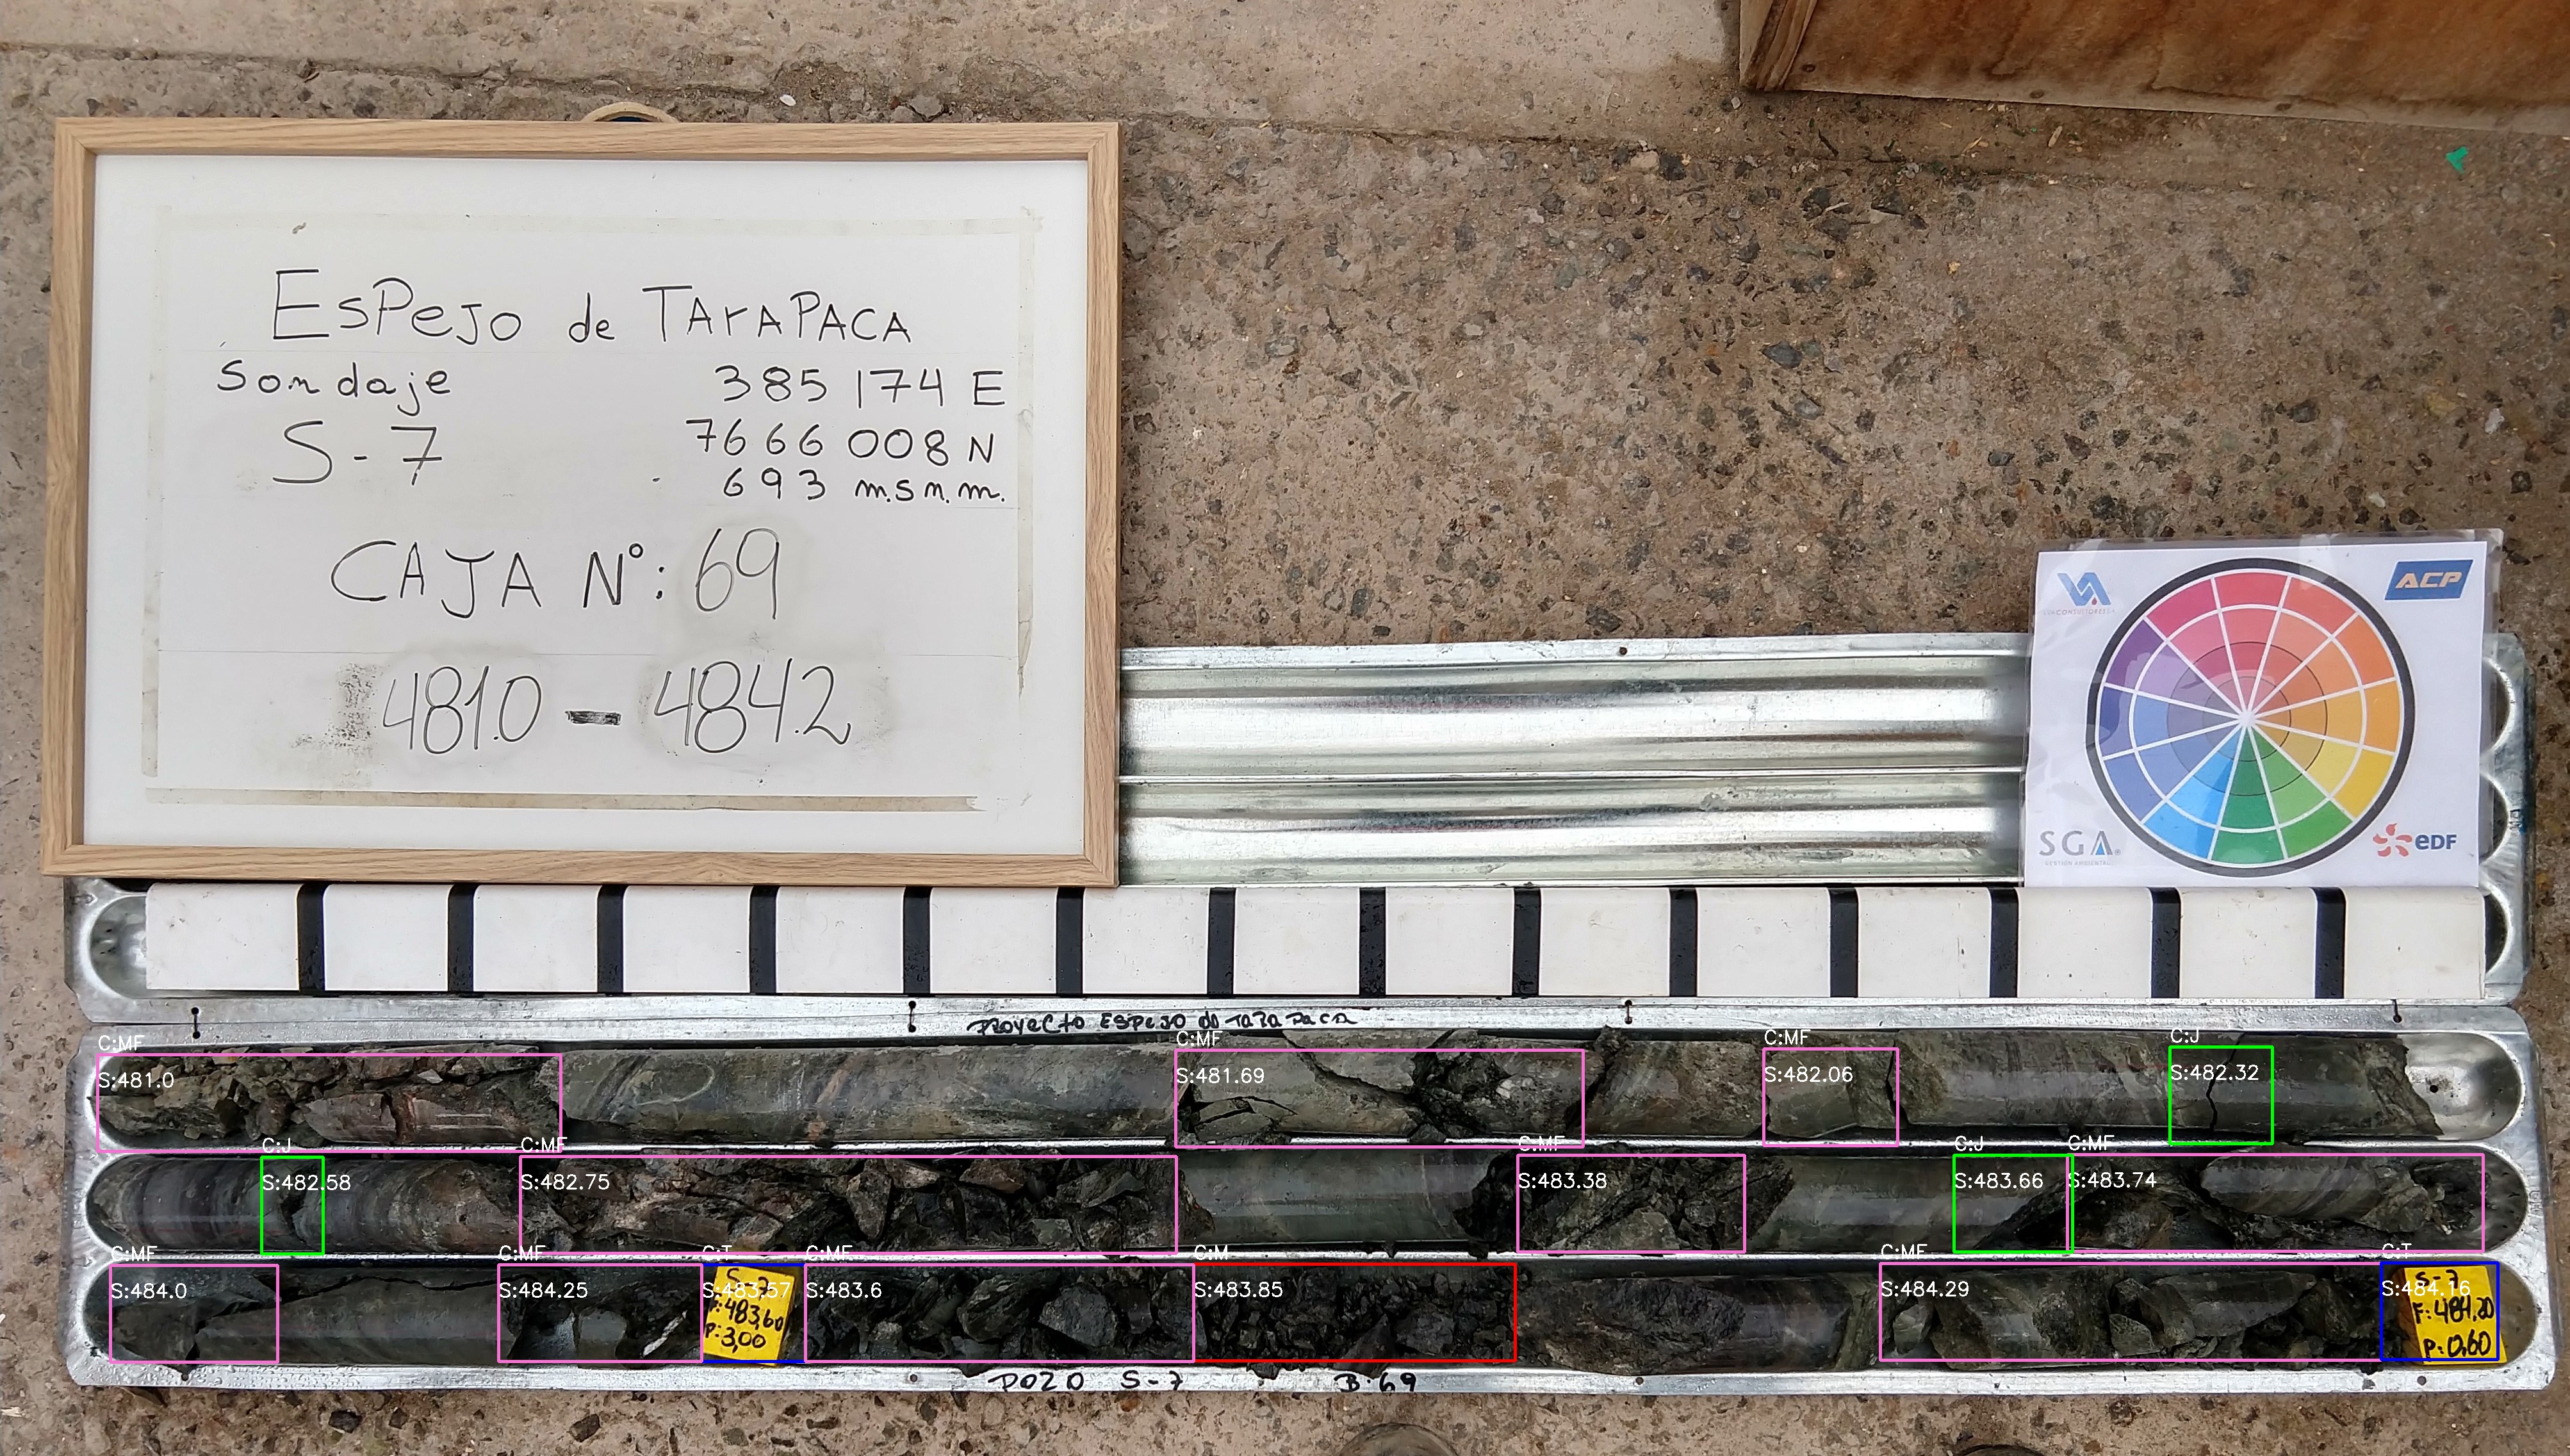 ESPEJO de TARAPACA
Sondaje 385 174 E
S-7 7666 008 N
693 m.s.n.m.
CAJA N°: 69
481.0 - 484.2
ACP
SGA
GESTION AMBIENTAL
eDF
PROYECTO ESPEJO de TARAPACA
C:MF
S:481.0
C:MF
S:481.69
C:MF
S:482.06
C:J
S:482.32
C:J
S:482.58
C:MF
S:482.75
C:MF
S:483.38
C:J
S:483.66
C:MF
S:483.74
C:MF
S:484.0
C:MF
S:484.25
C:T
S:483.57
S-7
F:483,60
P:3,00
C:MF
S:483.6
C:M
S:483.85
C:MF
S:484.29
C:T
S:484.16
S-7
F:484,20
P:0,60
POZO S-7 B:69